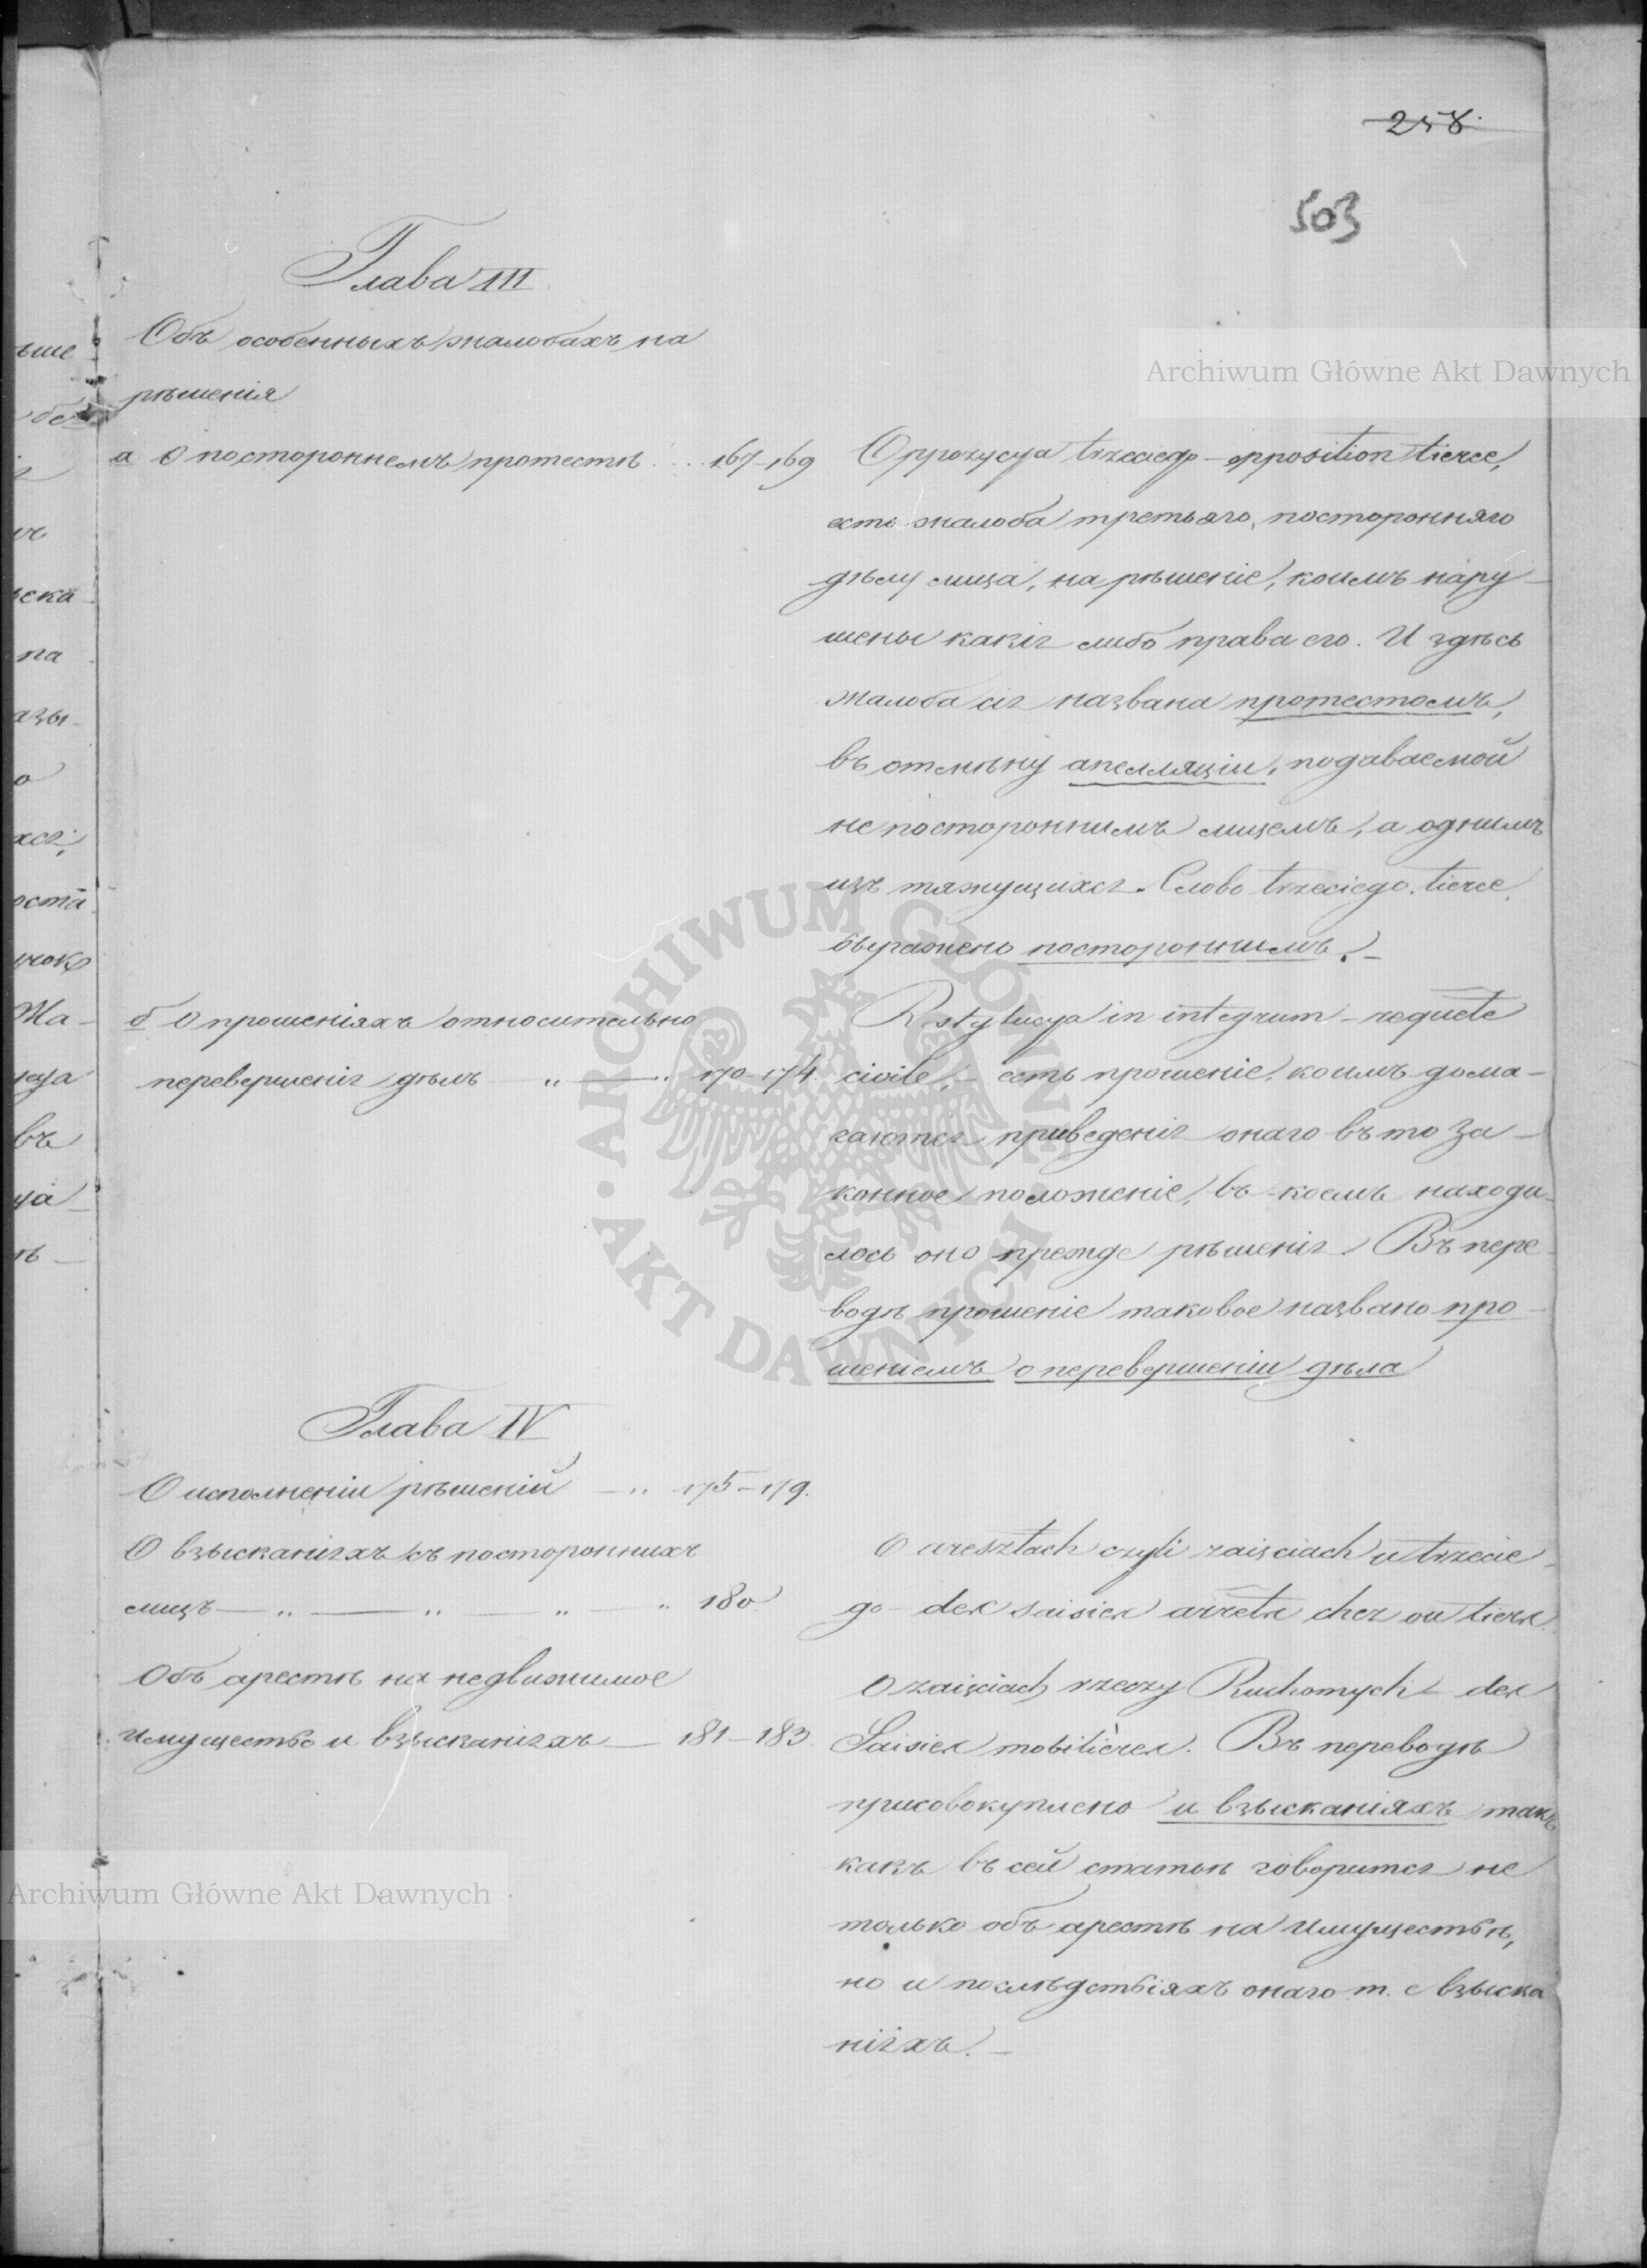 258.
503
Глава III
Объ особенныхъ жалобахъ на
рѣшенія
а О постороннемъ протестѣ . . . 167-169
Oppozycya trzeciego - opposition tierce,
есть жалоба третьяго, посторонняго
дѣлу лица, на рѣшеніе, коимъ нару-
шены какія либо права его. И здѣсь
жалоба сія названа протестомъ,
въ отмѣну апелляціи, подаваемой
не постороннимъ лицемъ, а однимъ
изъ тяжущихся. Слово trzeciego, tierce,
выражено постороннимъ. -
б О прошеніяхъ относительно
перевершенія дѣлъ — „ — „ 170-174.
Restytucya in integrum - requête
civile, - есть прошеніе, коимъ дома-
гаются приведенія онаго въ то за-
конное положеніе, въ коемъ находи-
лось оно прежде рѣшенія. Въ пере-
водѣ прошеніе таковое названо про-
шеніемъ о перевершеніи дѣла
Глава IV
О исполненіи рѣшеній — „ 175-179.
О взысканіяхъ съ постороннихъ
лицъ — „ — „ — „ — „ 180.
O aresztach czyli zajęciach u trzecie-
go - des saisies arrêts chez ou tiers.
Объ арестѣ на недвижимое
имущество и взысканіяхъ — 181-183.
O zajęciach rzeczy Ruchomych - des
Saisies mobilières. Въ переводѣ
присовокуплено и взысканіяхъ такъ
какъ въ сей статьѣ говорится не
только объ арестѣ на имуществѣ,
но и послѣдствіяхъ онаго т. е взыска
ніяхъ. -
Archiwum Główne Akt Dawnych
Archiwum Główne Akt Dawnych
ARCHIWUM GŁÓWNE
AKT DAWNYCH